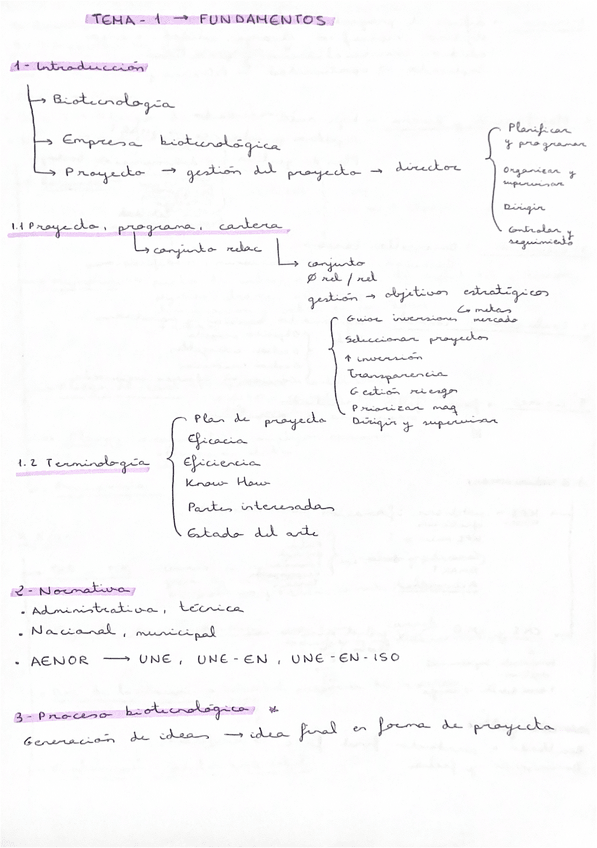 TEMA - 1 → FUNDAMENTOS
1 - Introducción
→ Biotecnología
→ Empresa biotecnológica
→ Proyecto → gestión del proyecto → director
Planificar
y programar
Organizar y
supervisar
Dirigir
Controlar y
seguimiento
1.1 Proyecto, programa, cartera
→ conjunto relac
→ conjunto
Ø rel / rel
gestión → objetivos estratégicos
↳ metas
Guiar inversiones mercado
Seleccionar proyectos
↑ inversión
Transparencia
Gestión riesgos
Priorizar maq
Dirigir y supervisar
1.2 Terminología
Plan de proyecto
Eficacia
Eficiencia
Know How
Partes interesadas
Estado del arte
2 - Normativa
• Administrativa, técnica
• Nacional, municipal
• AENOR → UNE, UNE-EN, UNE-EN-ISO
3 - Proceso biotecnológico *
Generación de ideas → idea final en forma de proyecto